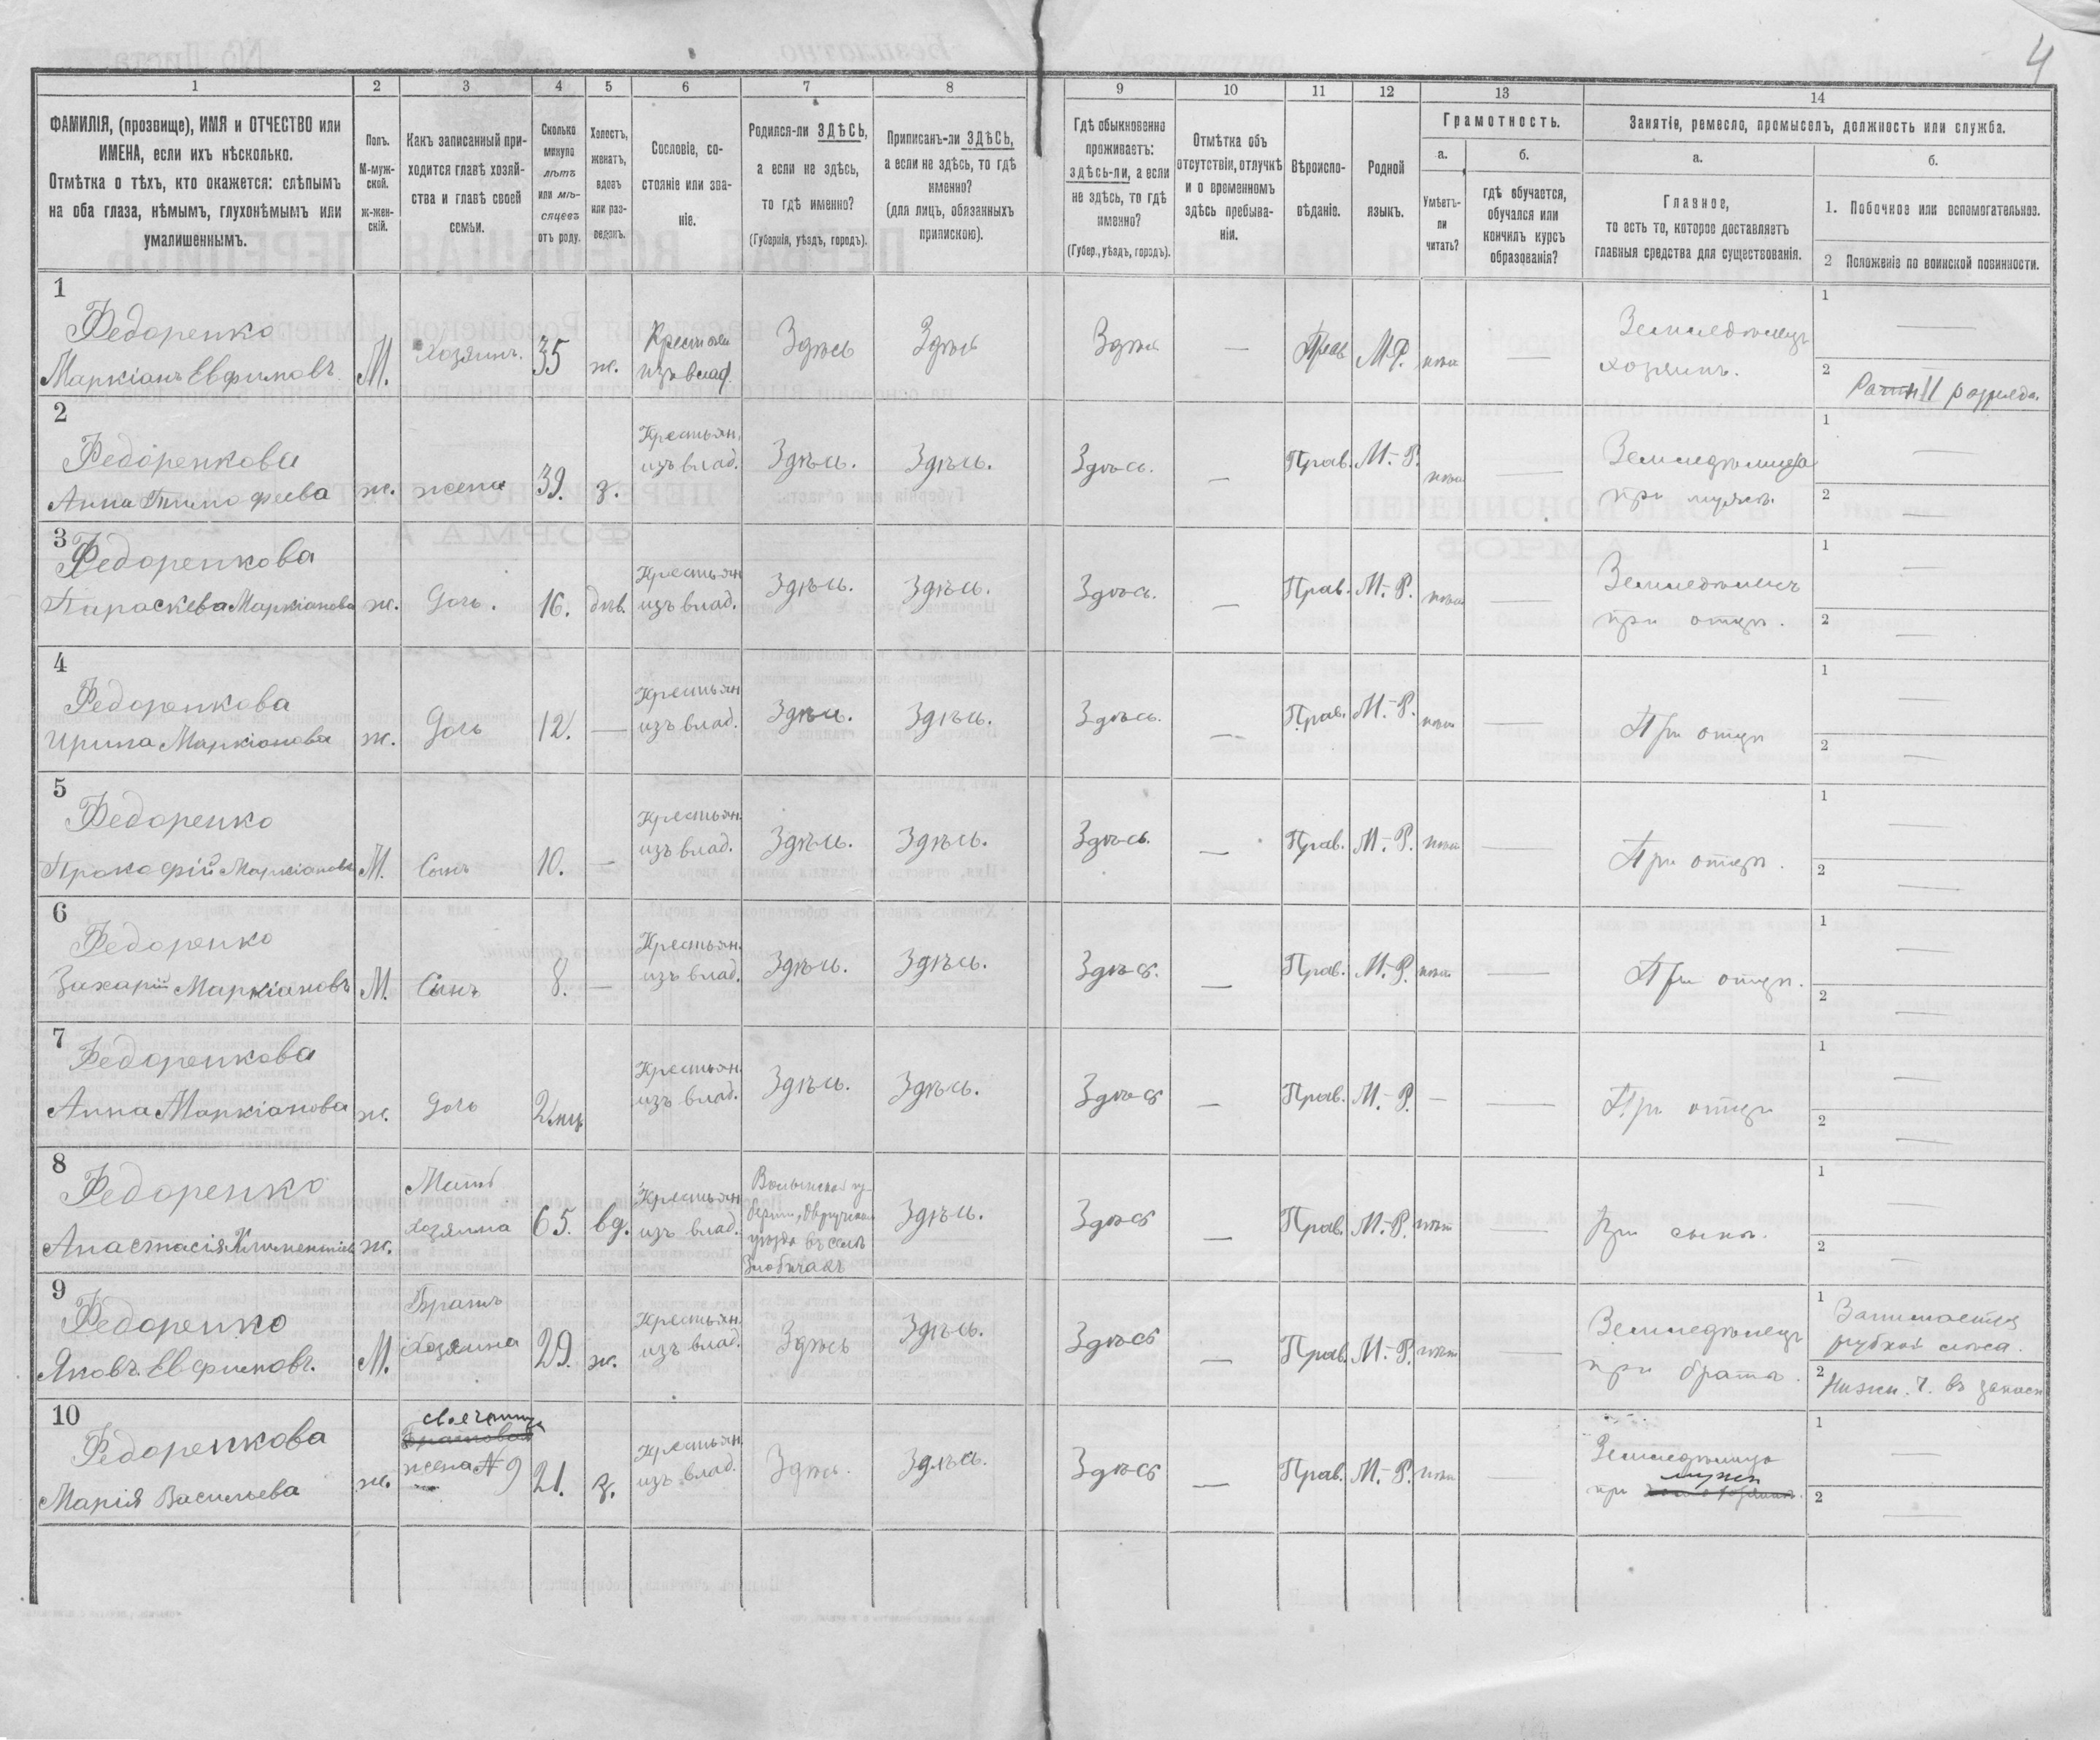 4
1 2 3 4 5 6 7 8 9 10 11 12 13 14
ФАМИЛІЯ, (прозвище), ИМЯ и ОТЧЕСТВО или
ИМЕНА, если ихъ нѣсколько.
Отмѣтка о тѣхъ, кто окажется: слѣпымъ
на оба глаза, нѣмымъ, глухонѣмымъ или
умалишеннымъ.
Полъ.
М-муж-
ской.
ж-жен-
скій.
Какъ записанный при-
ходится главѣ хозяй-
ства и главѣ своей
семьи.
Сколько
минуло
лѣтъ
или мѣ-
сяцевъ
отъ роду.
Холостъ,
женатъ,
вдовъ
или раз-
веденъ.
Сословіе, со-
стояніе или зва-
ніе.
Родился-ли ЗДѢСЬ,
а если не здѣсь,
то гдѣ именно?
(Губернія, уѣздъ, городъ).
Приписанъ-ли ЗДѢСЬ,
а если не здѣсь, то гдѣ
именно?
(для лицъ, обязанныхъ
припискою).
Гдѣ обыкновенно
проживаетъ:
здѣсь-ли, а если
не здѣсь, то гдѣ
именно?
(Губер., уѣздъ, городъ).
Отмѣтка объ
отсутствіи, отлучкѣ
и о временномъ
здѣсь пребыва-
ніи.
Вѣроиспо-
вѣданіе.
Родной
языкъ.
Грамотность.
а.
Умѣетъ-
ли
читать?
б.
гдѣ обучается,
обучался или
кончилъ курсъ
образованія?
Занятіе, ремесло, промыселъ, должность или служба.
а.
Главное,
то есть то, которое доставляетъ
главныя средства для существованія.
б.
1. Побочное или вспомогательное.
2 Положеніе по воинской повинности.
1
Федоренко
Маркіанъ Евфимовъ М. Хозяинъ. 35 ж.
изъ влад. Здѣсь Здѣсь Здѣсь — Прав М.Р. —
Земледѣлецъ
хозяинъ.
1 —
2 Ратн II разряда.
2
Федоренкова
Анна Тимофеева ж. жена 39. з.
Крестьян.
изъ влад. Здѣсь. Здѣсь. Здѣсь. — Прав. М.-Р. —
при мужѣ.
1 —
2 —
3
Федоренкова
Параскева Маркіанова ж. Дочь. 16. дѣв.
Крестьян
изъ влад. Здѣсь. Здѣсь. Здѣсь. — Прав. М.-Р. —
при отцѣ.
1 —
2 —
4
Федоренкова
Ирина Маркіанова ж. Дочь 12. —
Крестьян
изъ влад. Здѣсь. Здѣсь. Здѣсь. — Прав. М.-Р. —
При отцѣ
1 —
2 —
5
Федоренко
Прокофій Маркіановъ М. Сынъ 10. —
Крестьян.
изъ влад. Здѣсь. Здѣсь. Здѣсь. — Прав. М.-Р. —
При отцѣ.
1 —
2 —
6
Федоренко
Захарій Маркіановъ М. Сынъ 8. —
Крестьян.
изъ влад. Здѣсь. Здѣсь. Здѣсь. — Прав. М.-Р. —
При отцѣ.
1 —
2 —
7
Федоренкова
Анна Маркіанова ж. Дочь 2 мц.
Крестьян.
изъ влад. Здѣсь. Здѣсь. Здѣсь — Прав. М.-Р. — —
При отцѣ
1 —
2 —
8
Федоренко
Анастасія ж.
Мать
хозяина 65. вд.
Крестьян
изъ влад.
уѣзда въ селѣ
Здѣсь. Здѣсь — Прав. М.-Р. нѣт —
При сынѣ.
1 —
2 —
9
Федоренко
Яковъ Евфимовъ. М.
Братъ
Хозяина 29. ж.
Крестьян.
изъ влад. Здѣсь Здѣсь. Здѣсь — Прав. М.-Р. нѣт —
Земледѣлецъ
при братѣ.
1 Занимается
рубкой лѣса.
2 Нижн. ч. въ запасѣ
10
Федоренкова
Марія Васильева ж.
жена № 9 21. з.
Крестьян
изъ влад. Здѣсь. Здѣсь. Здѣсь — Прав. М.-Р. —
мужѣ
при
1 —
2 —